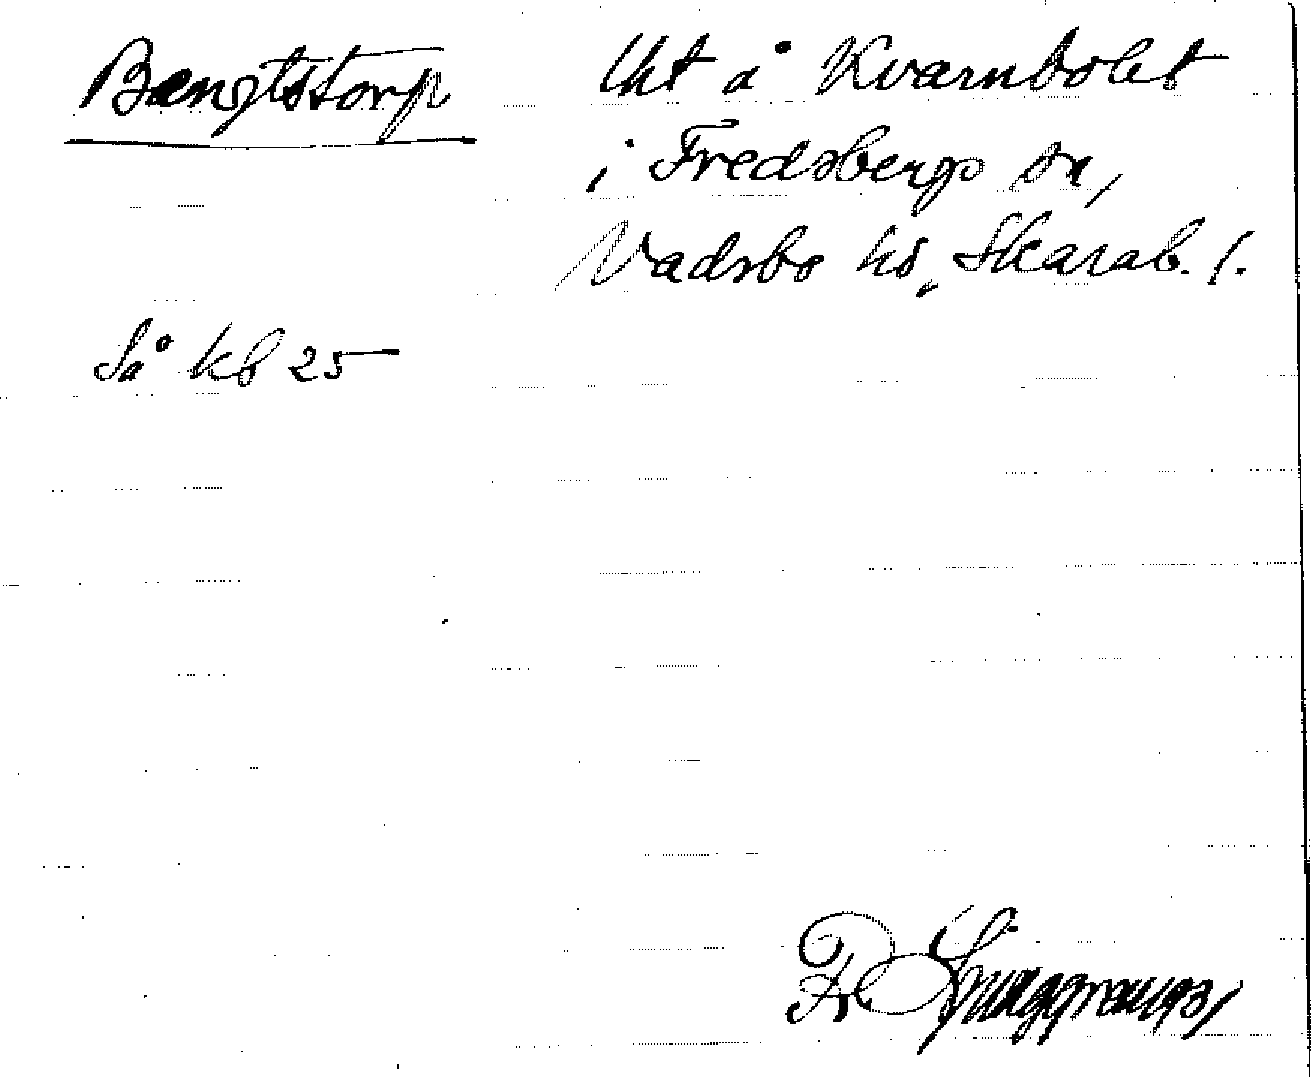 Bengtstorp
Uht å Kvarnbolet
i Fredsbergs sn,
Vadsbo hd, Skarab. l.
Så kb 25